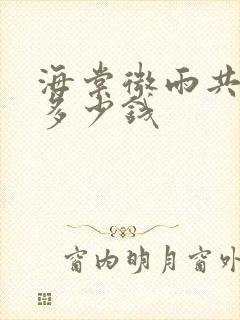 海棠微雨共
多少钱
窗内明月窗外